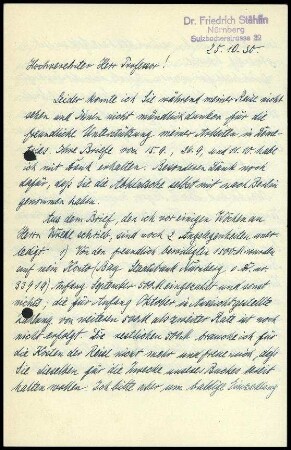 Dr. Friedrich Stählin
Nürnberg
Sulzbacherstrasse 22
25. 10. 30.
Hochverehrter Herr Professor!
Leider konnte ich Sie während meiner Reise nicht
sehen und Ihnen nicht mündlich danken für die
freundliche Unterstützung meiner Arbeiten in
Ihre Briefe vom 15.9., 26.9. und habe
ich mit Dank erhalten. Besonderen Dank noch
dafür, daß Sie die selbst mit nach Berlin
genommen haben.
Aus dem Brief, den ich vor einigen Wochen an
Herrn schrieb, sind noch 2 Angelegenheiten unerledigt
1) Von den freundlich bewilligten wurden
auf mein Konto (Bay. Staatsbank Nürnberg
33910) Anfang September einbezahlt und sonst
nichts; die für Anfang Oktober in Aussicht gestellte
Zahlung von weiteren als zweiter Rate ist noch
nicht erfolgt. Die restlichen brauche ich für
die Kosten der Reise nicht mehr und freue mich, daß
Sie dieselben für die Zwecke unseres Buches bereit
halten wollen. Ich bitte aber, um baldige